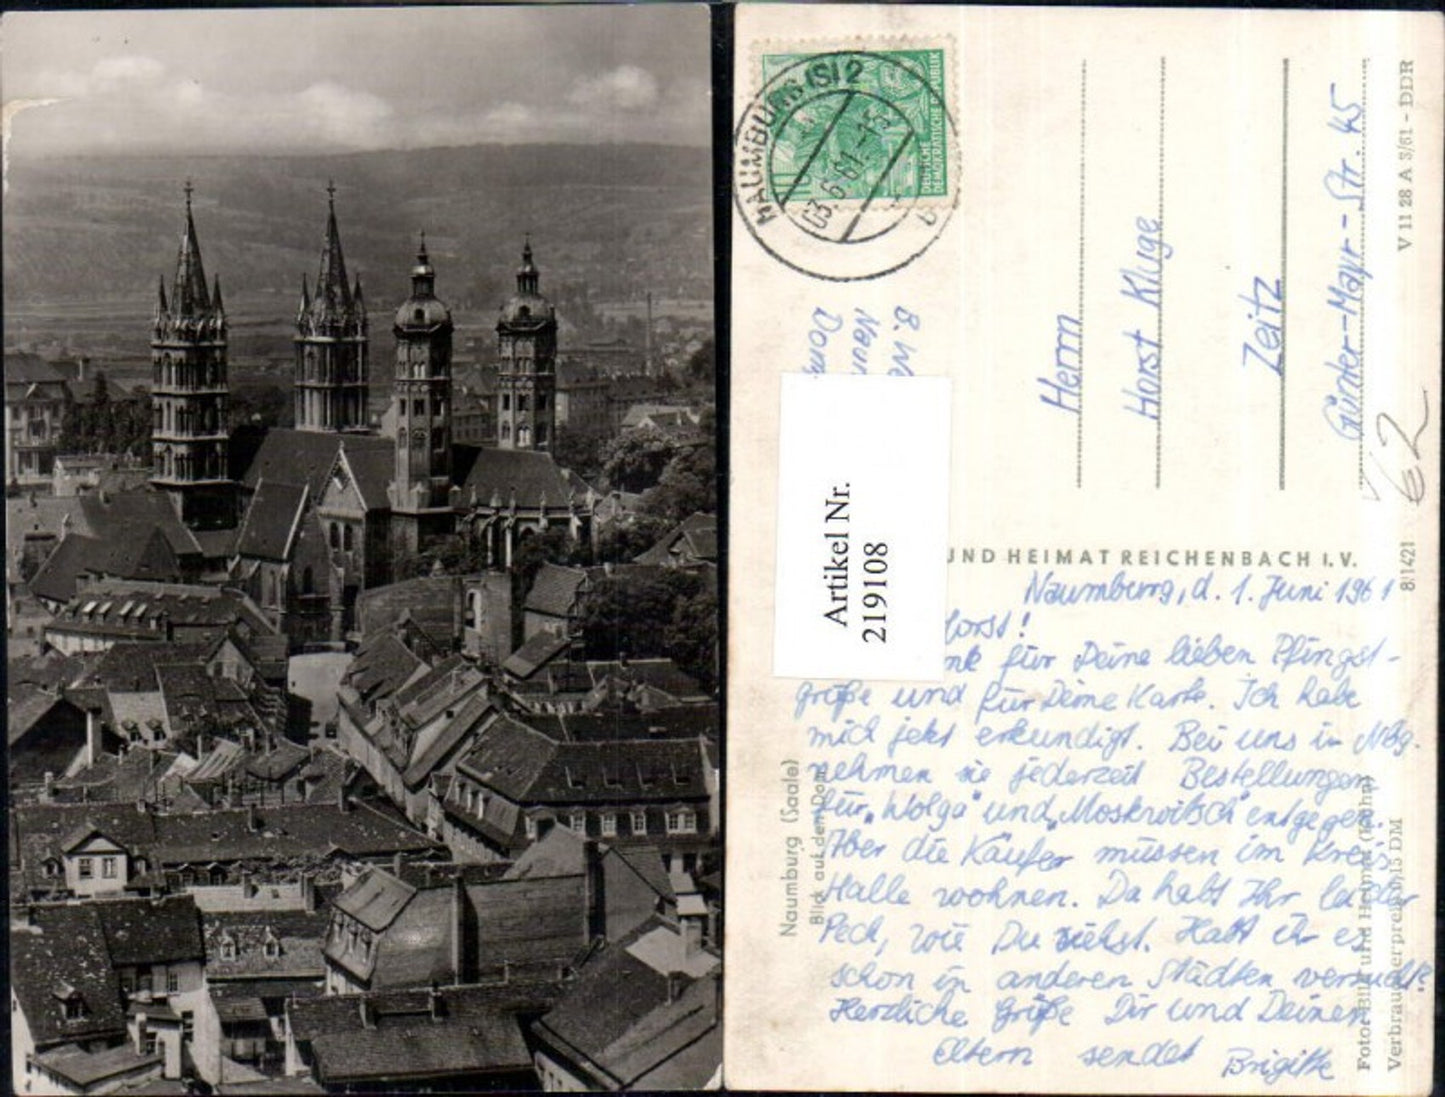 NAUMBURG (S) 2
03.6.61.-15
DEUTSCHE
DEMOKRATISCHE REPUBLIK
B. We
Nau
Dom
Artikel Nr.
219108
Herrn
Horst Kluge
Zeitz
Günter-Mayr-Str. 45
62
V 11 28 A 3/61 - DDR
8/1421
UND HEIMAT REICHENBACH I. V.
Naumburg, d. 1. Juni 1961
Horst!
für Deine lieben Pfingst-
grüße und für Deine Karte. Ich habe
mich jetzt erkundigt. Bei uns in Nbg.
nehmen sie jederzeit Bestellungen
für „Wolga" und „Moskwitsch" entgegen.
Aber die Käufer müssen im Kreis
Halle wohnen. Da habt Ihr leider
Pech, wie Du siehst. Habt ihr es
schon in anderen Städten versucht?
Herzliche Grüße Dir und Deinen
Eltern sendet Brigitte
Naumburg (Saale)
Blick auf den Dom
Foto: Bild und Heimat (Kühn)
Verbraucherpreis 0,15 DM